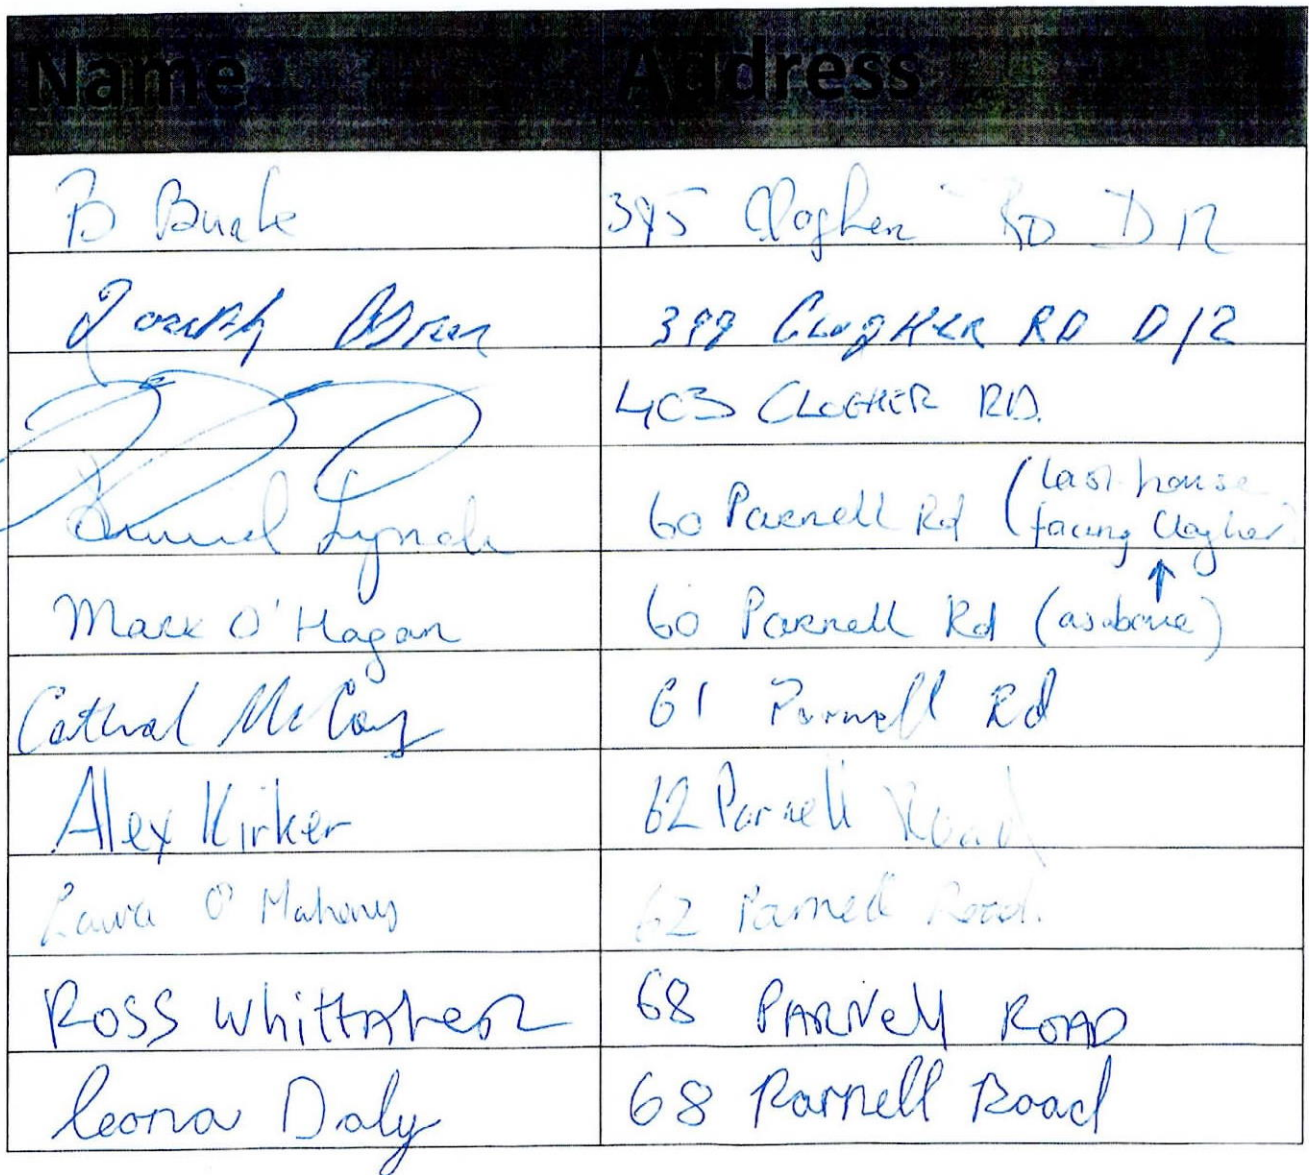 Name Address
B Burke 395 Clogher RD D12
399 CLOGHER RD D12
403 CLOGHER RD.
Daniel Lynch 60 Parnell Rd (last house
facing Clogher)
↑
Mark O'Hagan 60 Parnell Rd (as above)
Cathal McCoy 61 Parnell Rd
Alex Kirker 62 Parnell Road
Laura O'Mahony 62 Parnell Road.
ROSS WhittAkeR 68 PARNell ROAD
Leona Daly 68 Parnell Road